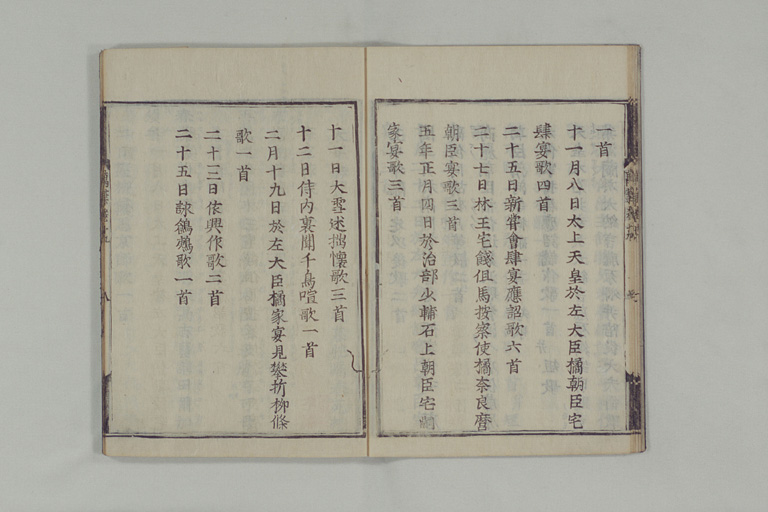 一首
十一月八日太上天皇於左大臣橘朝臣宅
肆宴歌四首
二十五日新甞會肆宴應詔歌六首
二十七日林王宅餞但馬按察使橘奈良麿
朝臣宴歌三首
五年正月四日於治部少輔石上朝臣宅嗣
家宴歌三首
十一日大雪述拙懷歌三首
十二日侍内裏聞千鳥喧歌一首
二月十九日於左大臣橘家宴見攀折柳條
歌一首
二十三日依興作歌二首
二十五日詠鶬鶊歌一首